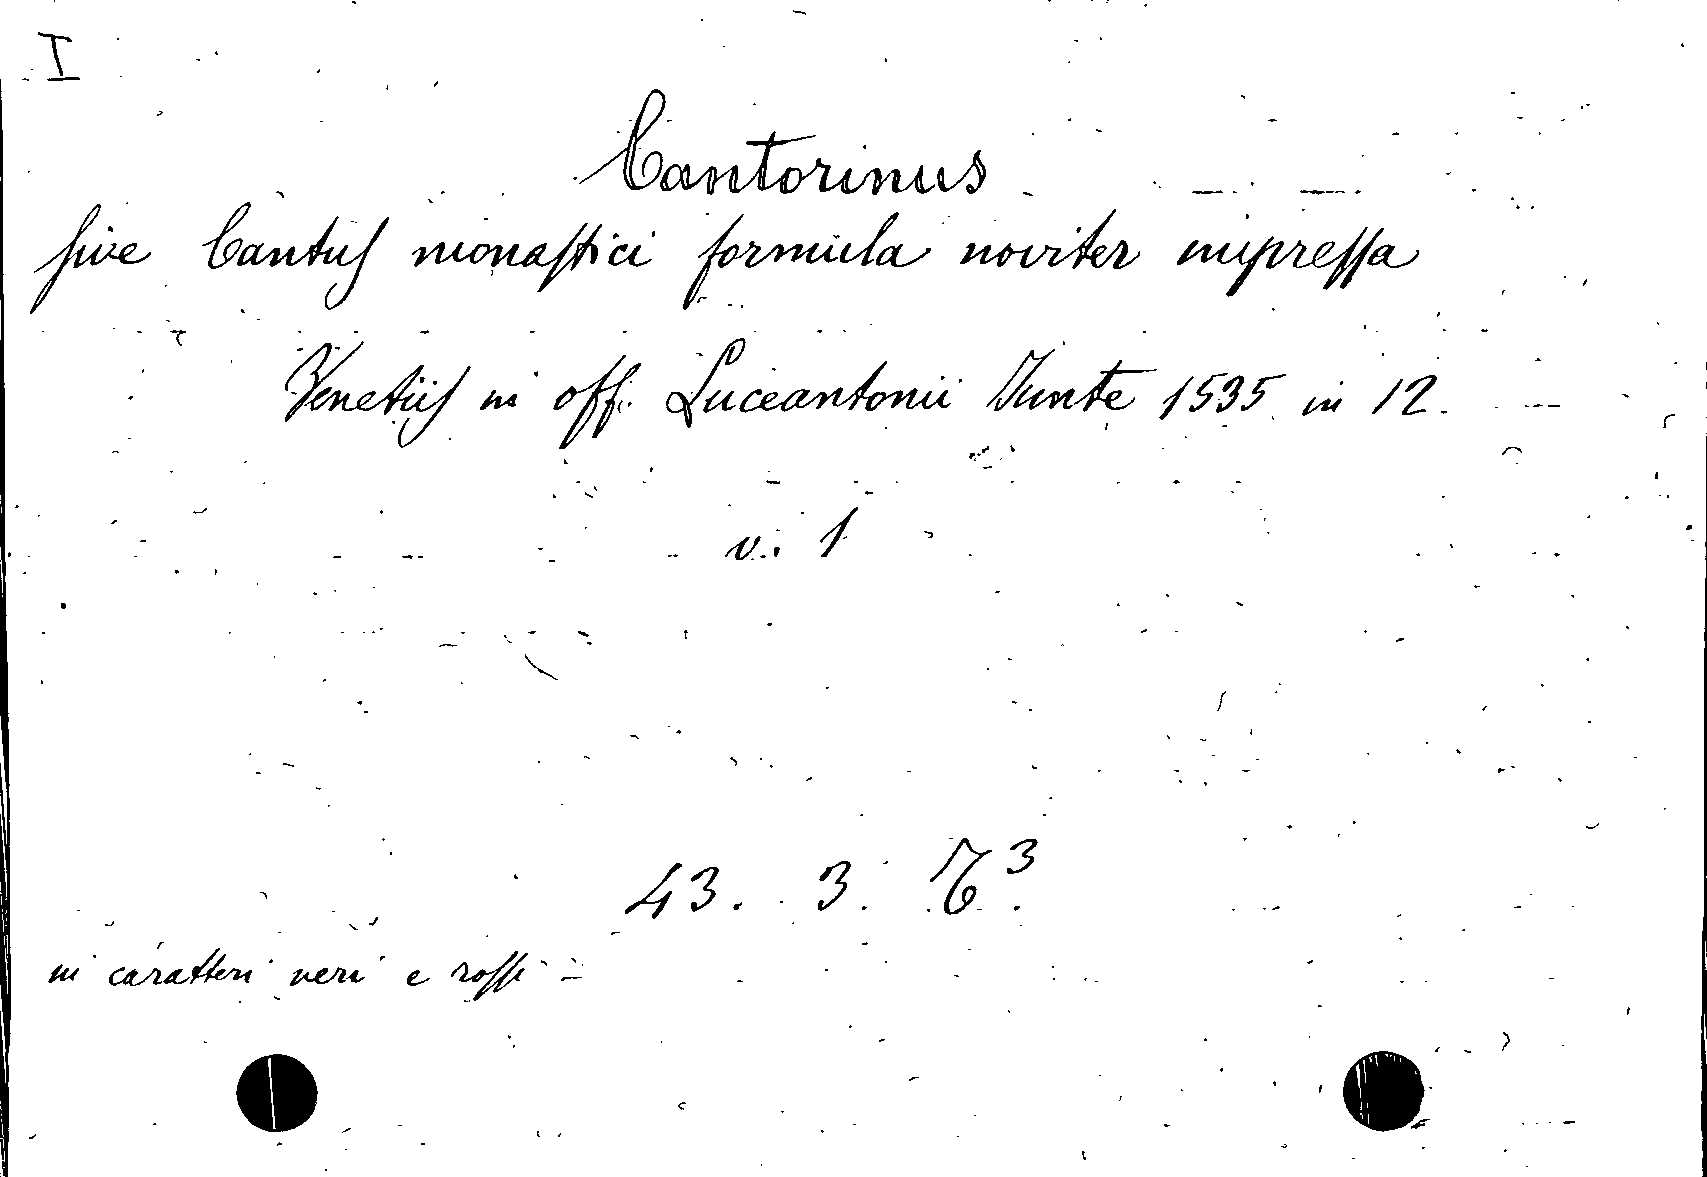 I
Cantorinus
sive Cantus monastici formula noviter impressa
Venetiis in off. Luceantonii Junte 1535 in 12.
v. 1
43. 3. 
in caratteri neri e rossi